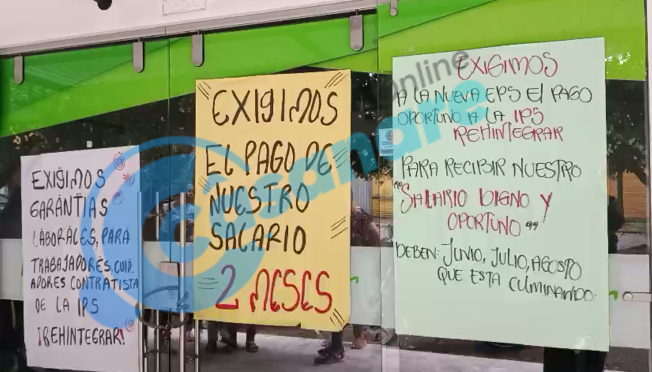 EXIGIMOS
GARANTIAS
LABORALES, PARA
TRABAJADORES, CUID
ADORES CONTRATISTA
DE LA IPS
¡REHINTEGRAR!
"EXIGIMOS
EL PAGO DE
NUESTRO
SALARIO
2 MESES
EXIGIMOS
A LA NUEVA EPS EL PAGO
OPORTUNO A LA IPS
REHINTEGRAR
PARA RECIBIR NUESTRO
"SALARIO DIGNO Y
OPORTUNO"
DEBEN: JUNIO, JULIO, AGOSTO
QUE ESTA CULMINANDO.
csanare
online